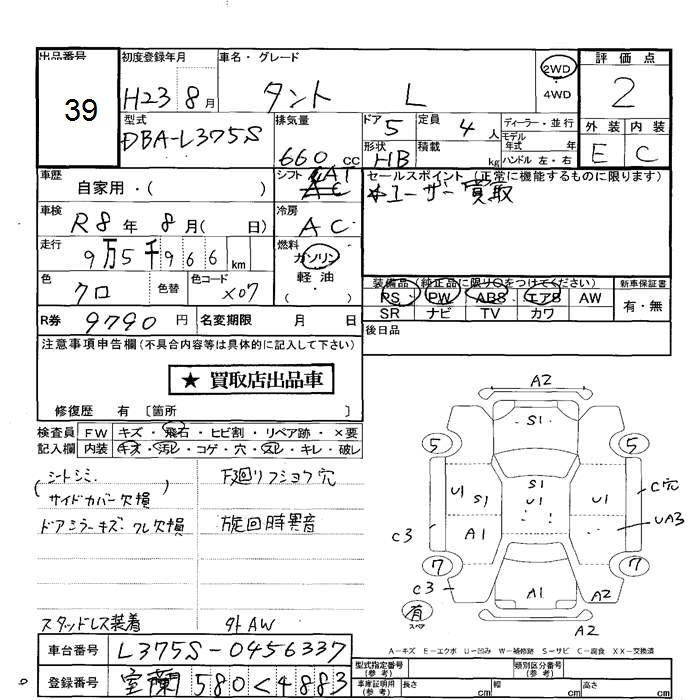 出品番号
39
初度登録年月
H23 8月
車名・グレード
タント L
2WD
・
4WD
評価点
2
型式
DBA-L375S
排気量
660 cc
ドア 5
定員 4 人
形状 HB
積載 kg
ディーラー・並行
モデル年式 年
ハンドル 左・右
外装 内装
E C
車歴
自家用・( )
シフト
AT
セールスポイント (正常に機能するものに限ります)
ユーザー買取
車検
R8年 8月( 日)
冷房
AC
走行
9万5千966 km
燃料
ガソリン
軽油
( )
色
クロ
色替
色コード
X07
装備品 (純正品に限り○をつけてください)
PS PW ABS エアB AW
SR ナビ TV カワ
新車保証書
有・無
R券 9790 円
名変期限 月 日
後日品
注意事項申告欄(不具合内容等は具体的に記入して下さい)
★ 買取店出品車
修復歴 有 〔箇所 〕
検査員 FW キズ・飛石・ヒビ割・リペア跡・×要
記入欄 内装 キズ・汚レ・コゲ・穴・スレ・キレ・破レ
シートシミ
サイドカバー欠損
ドアミラーキズ・ワレ欠損
下廻リフショク穴
旋回時異音
スタッドレス装着
外AW
車台番号 L375S-0456337
登録番号 室蘭580く4883
A2
S1
5 5
S1
U1 S1 U1 U1
C穴
A1
UA3
C3
7 7
C3
A1 A2
有
スペア
A2
A－キズ E－エクボ U－凹み W－補修跡 S－サビ C－腐食 XX－交換済
型式指定番号
(参考)
類別区分番号
(参考)
車庫証明用
(参考)
長さ cm 幅 cm 高さ cm